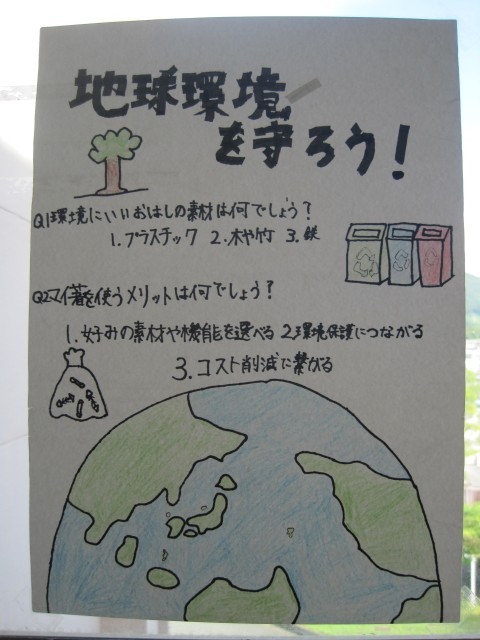 地球環境
を守ろう!
Q1環境にいいおはしの素材は何でしょう?
1.プラスチック 2.木や竹 3.鉄
Q2マイ箸を使うメリットは何でしょう?
1.好みの素材や機能を選べる 2.環境保護につながる
3.コスト削減に繋がる